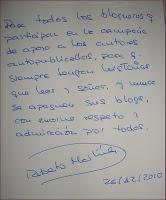 Para todos los blogueros q
participan en la campaña
de apoyo a los autores
autopublicados, para q
siempre tengan historias
que leer y soñar, y nunca
se apaguen sus blogs,
con enorme respeto y
admiración por todos.
26/12/2010